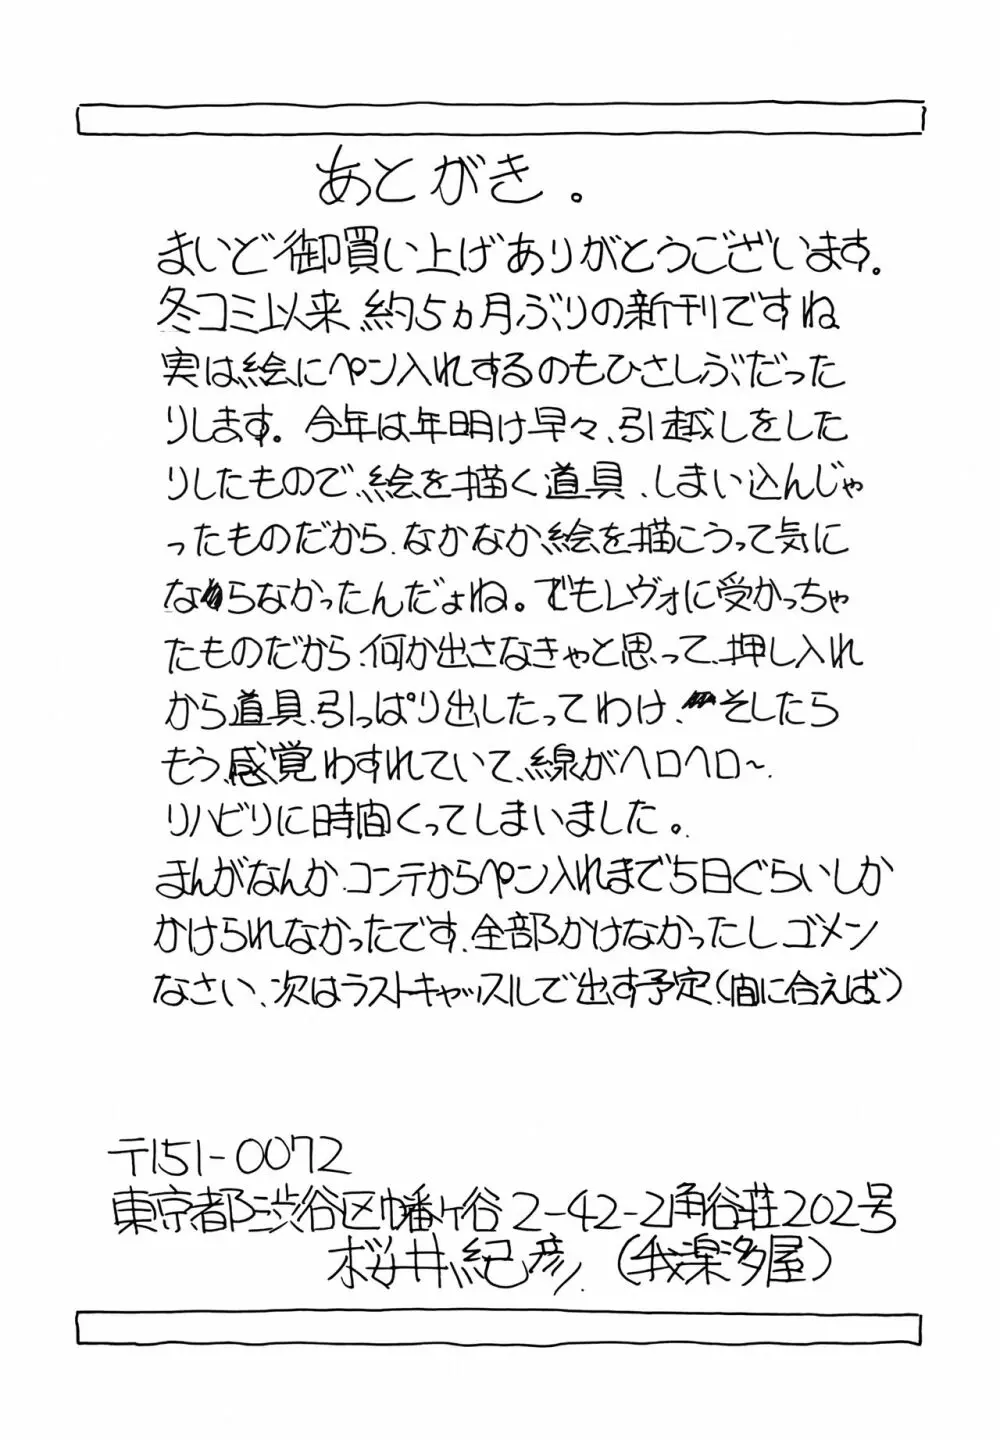 あとがき。
まいど御買い上げありがとうございます。
冬コミ以来、約5ヵ月ぶりの新刊ですね
実は絵にペン入れするのもひさしぶだった
りします。今年は年明け早々、引越しをした
りしたもので、絵を描く道具、しまい込んじゃ
ったものだから、なかなか、絵を描こうって気に
なならなかったんだよね。でもレヴォに受かっちゃ
たものだから、何か出さなきゃと思って、押し入れ
から道具、引っぱり出したってわけ、そしたら
もう、感覚わすれていて、線がヘロヘロ〜。
リハビリに時間くってしまいました。
まんがなんか、コンテからペン入れまで5日ぐらいしか
かけられなかったです、全部かけなかったし ゴメン
なさい、次はラストキャッスルで出す予定、(間に合えば)
〒151-0072
東京都渋谷区幡ヶ谷2-42-2角谷荘202号
桜井紀彦、(我楽多屋)